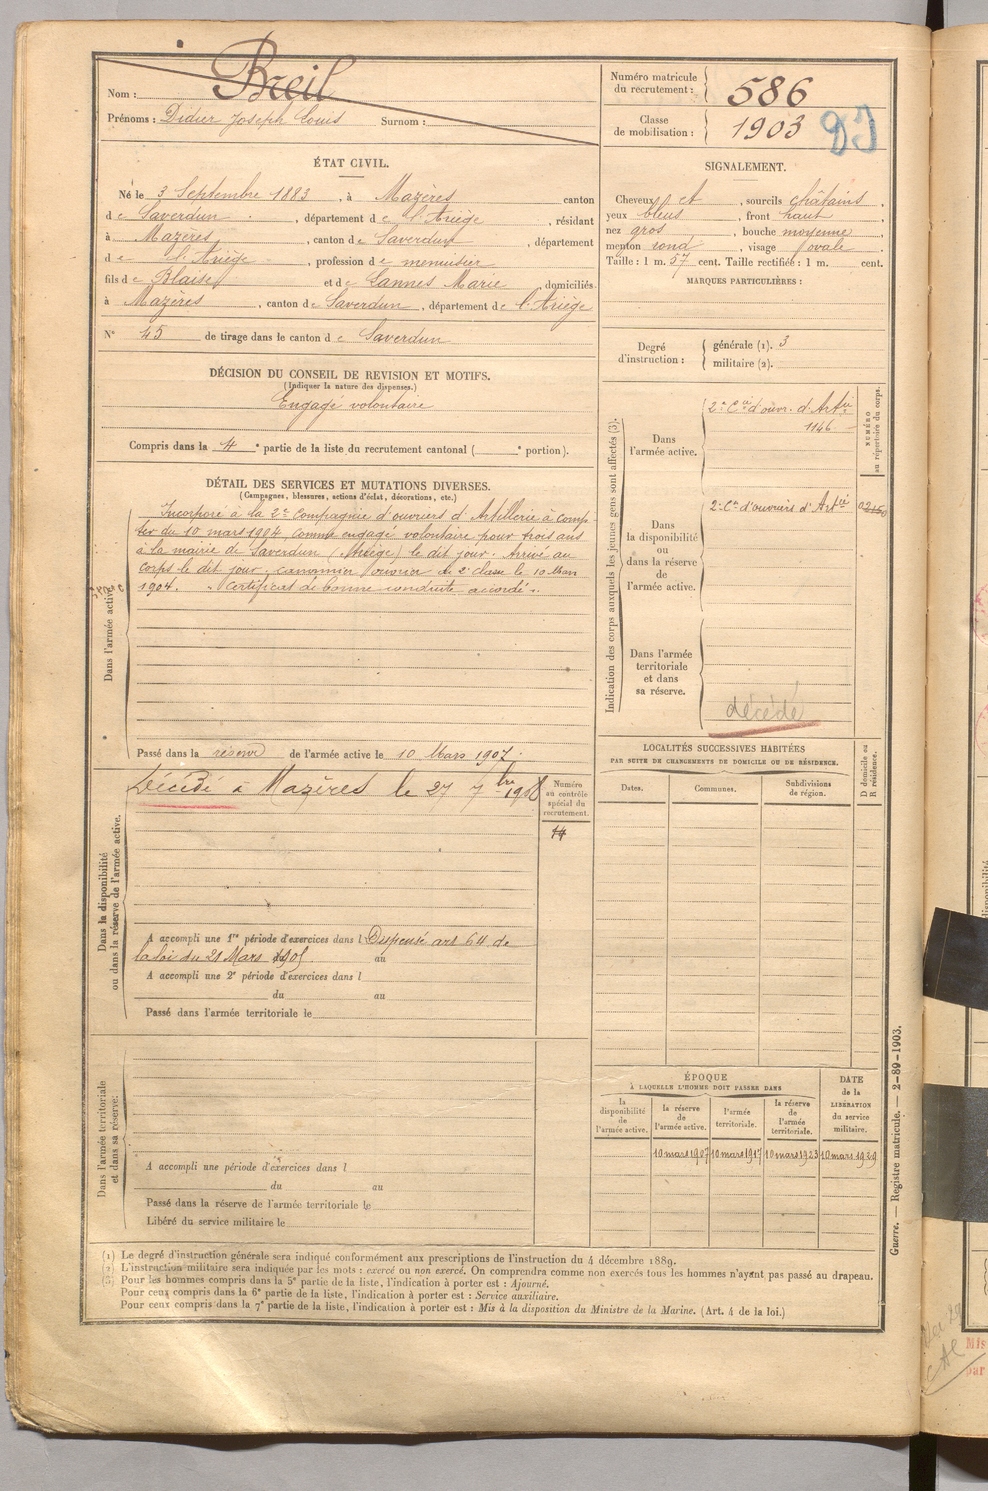 Nom : Breil
Prénoms : Didier Joseph Louis Surnom :
Numéro matricule du recrutement : 586
Classe de mobilisation : 1903
ÉTAT CIVIL.
Né le 3 Septembre 1883, à Mazères canton
de Saverdun, département de l'Ariège, résidant
à Mazères, canton de Saverdun, département
de l'Ariège, profession de menuisier
fils de Blaise et de Lannes Marie domiciliés
à Mazères, canton de Saverdun, département de l'Ariège
N° 45 de tirage dans le canton de Saverdun
SIGNALEMENT.
Cheveux et, sourcils châtains,
yeux bleus, front haut,
nez gros, bouche moyenne,
menton rond, visage ovale.
Taille : 1 m. 57 cent. Taille rectifiée : 1 m. cent.
MARQUES PARTICULIÈRES :
Degré d'instruction : générale (1). 3
militaire (2).
DÉCISION DU CONSEIL DE REVISION ET MOTIFS.
(Indiquer la nature des dispenses.)
Engagé volontaire
Compris dans la 4e partie de la liste du recrutement cantonal ( e portion).
DÉTAIL DES SERVICES ET MUTATIONS DIVERSES.
(Campagnes, blessures, actions d'éclat, décorations, etc.)
Dans l'armée active.
Incorporé à la 2e Compagnie d'ouvriers d'Artillerie à comp-
ter du 10 mars 1904, comme engagé volontaire pour trois ans
à la mairie de Saverdun (Ariège) le dit jour. Arrivé au
corps le dit jour, canonnier ouvrier de 2e classe le 10 Mars
1904. Certificat de bonne conduite accordé.
Passé dans la réserve de l'armée active le 10 Mars 1907.
Indication des corps auxquels les jeunes gens sont affectés (3).
NUMÉRO au répertoire du corps.
Dans l'armée active.
2e Cie d'ouvr. d'Artie
1146
Dans la disponibilité ou dans la réserve de l'armée active.
2e Cie d'ouvriers d'Artie
Dans l'armée territoriale et dans sa réserve.
décédé
Dans la disponibilité ou dans la réserve de l'armée active.
Décédé à Mazères le 27 7bre 1908
Numéro au contrôle spécial du recrutement.
14
A accompli une 1re période d'exercices dans l Dispensé art 64 de
la loi du 21 Mars 1905 au
A accompli une 2e période d'exercices dans l
du au
Passé dans l'armée territoriale le
LOCALITÉS SUCCESSIVES HABITÉES
PAR SUITE DE CHANGEMENTS DE DOMICILE OU DE RÉSIDENCE.
D domicile ou R résidence.
Dates. Communes. Subdivisions de région.
Dans l'armée territoriale et dans sa réserve.
A accompli une période d'exercices dans l
du au
Passé dans la réserve de l'armée territoriale le
Libéré du service militaire le
ÉPOQUE
À LAQUELLE L'HOMME DOIT PASSER DANS
DATE de la LIBÉRATION du service militaire.
la disponibilité de l'armée active.
la réserve de l'armée active.
l'armée territoriale.
la réserve de l'armée territoriale.
10 mars 1907 10 mars 1917 10 mars 1923 10 mars 1929
(1) Le degré d'instruction générale sera indiqué conformément aux prescriptions de l'instruction du 4 décembre 1889.
(2) L'instruction militaire sera indiquée par les mots : exercé ou non exercé. On comprendra comme non exercés tous les hommes n'ayant pas passé au drapeau.
(3) Pour les hommes compris dans la 5e partie de la liste, l'indication à porter est : Ajourné.
Pour ceux compris dans la 6e partie de la liste, l'indication à porter est : Service auxiliaire.
Pour ceux compris dans la 7e partie de la liste, l'indication à porter est : Mis à la disposition du Ministre de la Marine. (Art. 4 de la loi.)
Guerre. — Registre matricule. — 2-89-1903.